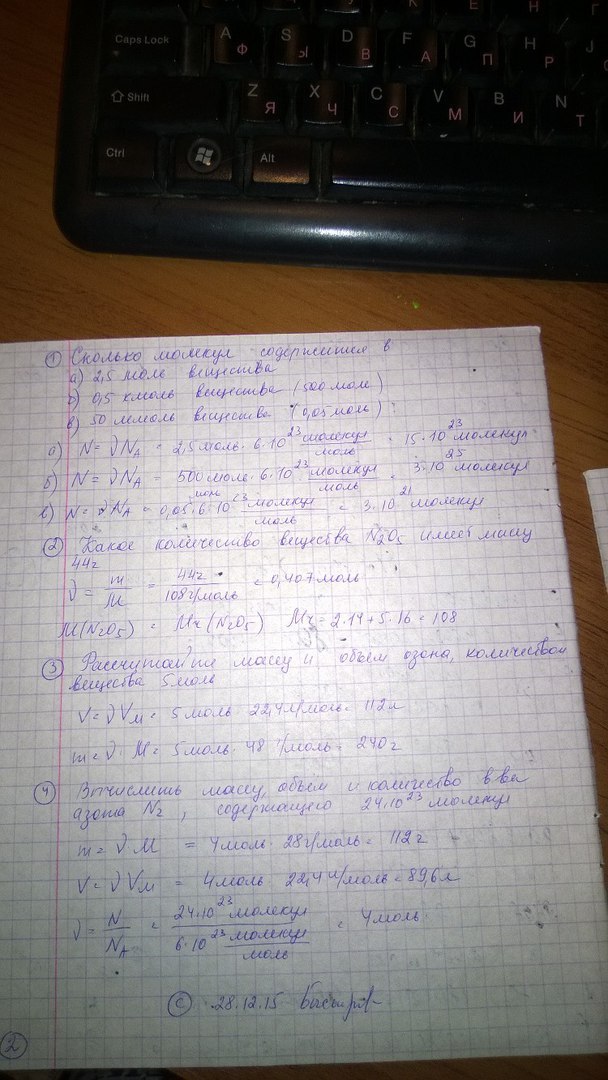 К Е Н
Caps Lock A Ф S Ы D В F А G П H Р J
Shift Z Я X Ч C С V М B И N Т
Ctrl Alt
① Сколько молекул содержится в
а) 2,5 моль вещества
б) 0,5 кмоль вещества (500 моль)
в) 50 ммоль вещества (0,05 моль)
а) N = νN_A = 2,5 моль · 6·10²³ молекул/моль = 15·10²³ молекул
б) N = νN_A = 500 моль · 6·10²³ молекул/моль = 3·10²⁵ молекул
в) N = νN_A = 0,05 моль · 6·10²³ молекул/моль = 3·10²¹ молекул
② Какое количество вещества N₂O₅ имеет массу
44г
ν = m/M = 44г/108г/моль = 0,407 моль
M(N₂O₅) = Mr(N₂O₅) Mr = 2·14+5·16 = 108
③ Рассчитайте массу и объем озона, количеством
вещества 5 моль
V = νVм = 5 моль · 22,4 л/моль = 112 л
m = ν · M = 5 моль · 48 г/моль = 240 г
④ Вычислить массу, объем и количество в-ва
азота N₂, содержащего 24·10²³ молекул
m = νM = 4 моль · 28 г/моль = 112 г
V = νVм = 4 моль · 22,4 л/моль = 89,6 л
ν = N/N_A = 24·10²³ молекул/6·10²³ молекул/моль = 4 моль
© 28.12.15
2